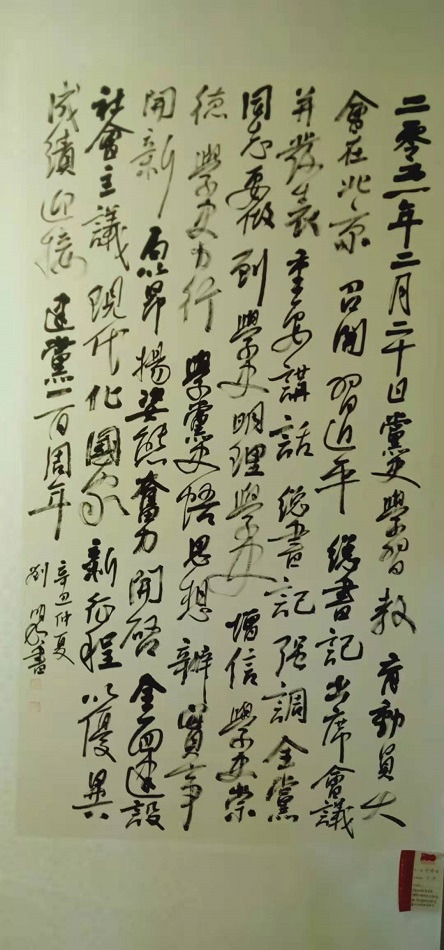 二零二一年二月二十日黨史學習教育動員大
會在北京召開習近平總書記出席會議
并發表重要講話總書記强調全黨
同志要做到學史明理學史增信學史崇
德學史力行學黨史悟思想辦實事
開新局以昂揚姿態奮力開啓全面建設
社會主議現代化國家新征程以優異
成績迎接建黨一百周年
辛丑仲夏
劉明書